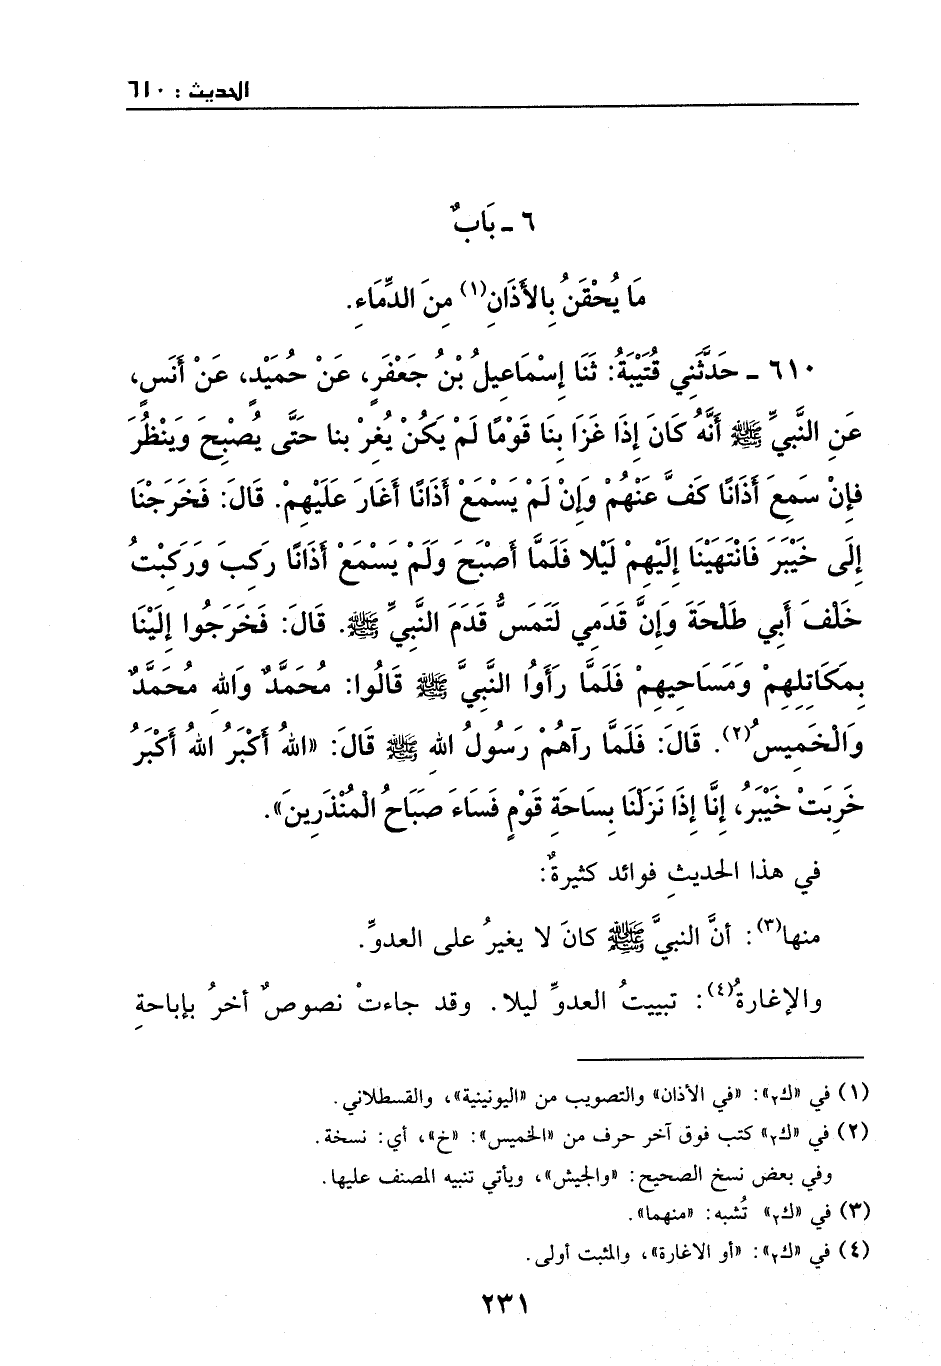 الحديث : ٦١٠
٦ ـ بَابٌ
مَا يُحْقَنُ بِالأَذَانِ(١) مِنَ الدِّمَاءِ.
٦١٠ ـ حَدَّثَنِي قُتَيْبَةُ: ثَنَا إِسْمَاعِيلُ بْنُ جَعْفَرٍ، عَنْ حُمَيْدٍ، عَنْ أَنَسٍ،
عَنِ النَّبيِّ ﷺ أَنَّهُ كَانَ إِذَا غَزَا بِنَا قَوْمًا لَمْ يَكُنْ يُغِرْ بنا حَتَّى يُصْبِحَ وَيَنْظُرَ
فإِنْ سَمِعَ أَذَانًا كَفَّ عَنْهُمْ وَإِنْ لَمْ يَسْمَعْ أَذَانًا أَغَارَ عَلَيْهِمْ. قَالَ: فَخَرَجْنَا
إِلَى خَيْبَرَ فَانْتَهَيْنَا إِلَيْهِمْ لَيْلا فَلَمَّا أَصْبَحَ وَلَمْ يَسْمَعْ أَذَانًا رَكِبَ وَرَكِبْتُ
خَلْفَ أَبِي طَلْحَةَ وَإِنَّ قَدَمِي لَتَمَسُّ قَدَمَ النَّبيِّ ﷺ. قَالَ: فَخَرَجُوا إِلَيْنَا
بِمَكَاتِلِهِمْ وَمَسَاحِيهِمْ فَلَمَّا رَأَوُا النَّبِيَّ ﷺ قَالُوا: مُحَمَّدٌ وَاللهِ مُحَمَّدٌ
وَالْخَمِيسُ(٢). قَالَ: فَلَمَّا رآهُمْ رَسُولُ اللهِ ﷺ قَالَ: «اللهُ أَكْبَرُ اللهُ أَكْبَرُ
خَرِبَتْ خَيْبَرُ، إِنَّا إِذَا نَزَلْنَا بِسَاحَةِ قَوْمٍ فَسَاءَ صَبَاحُ الْمُنْذَرِينَ».
في هذا الحديثِ فوائد كثيرةٌ:
منها(٣): أنَّ النبيَّ ﷺ كانَ لا يغيرُ على العدوِّ.
والإغارةُ(٤): تبييتُ العدوِّ ليلا. وقد جاءتْ نصوصٌ أخرُ بإباحةِ
(١) في «ك٢»: «في الأذان» والتصويب من «اليونينية»، والقسطلاني.
(٢) في «ك٢» كتب فوق آخر حرف من «الخميس»: «خ»، أي: نسخة.
وفي بعض نسخ الصحيح: «والجيش»، ويأتي تنبيه المصنف عليها.
(٣) في «ك٢» تُشبه: «منهما».
(٤) في «ك٢»: «أو الاغارة»، والمثبت أولى.
٢٣١